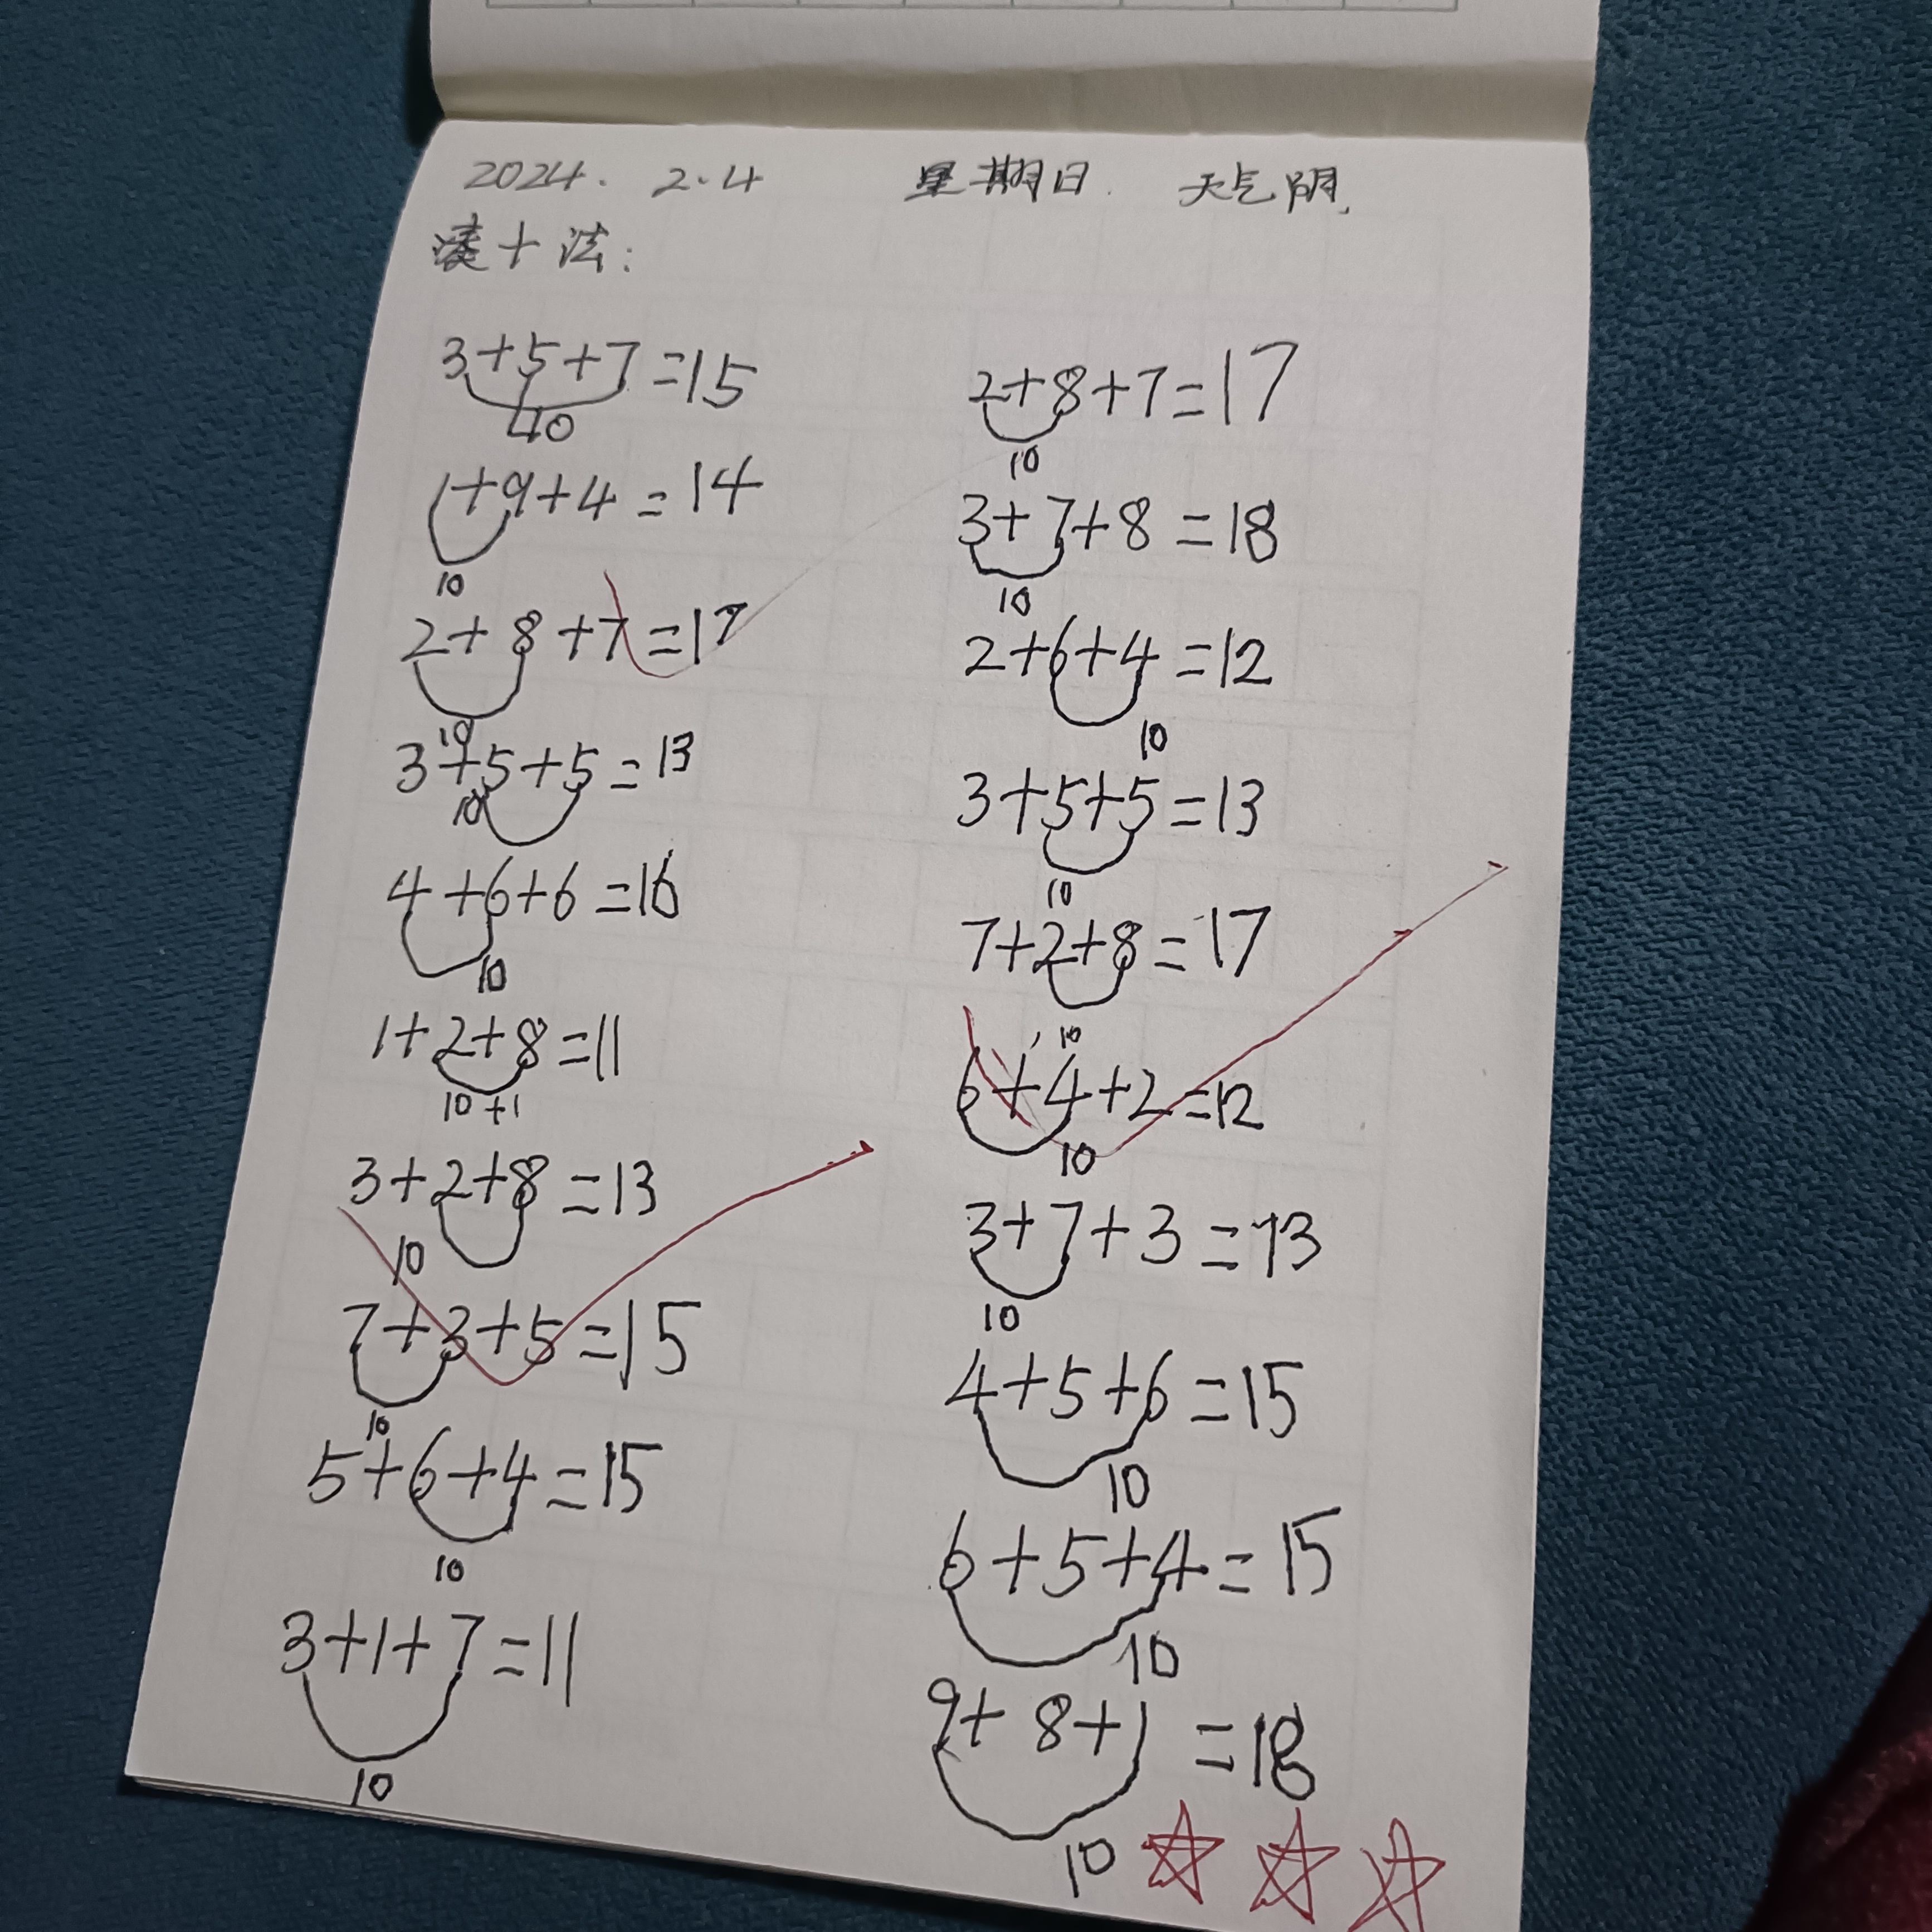 2024. 2.4 星期日. 天气阴,
凑十法:
3+5+7=15
10
1+9+4=14
10
2+8+7=17
10
3+5+5=13
10
4+6+6=16
10
1+2+8=11
10+1
3+2+8=13
10
7+3+5=15
10
5+6+4=15
10
3+1+7=11
10
2+8+7=17
10
3+7+8=18
10
2+6+4=12
10
3+5+5=13
10
7+2+8=17
10
6+4+2=12
10
3+7+3=13
10
4+5+6=15
10
6+5+4=15
10
9+8+1=18
10